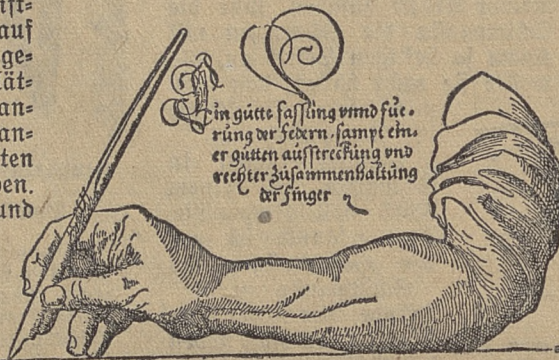 ift-
auf
ge-
ät-
an-
an-
ten
en.
und
Ein gůtte fassung vnnd fůe-
růng der federn, sampt ein-
er gůtten ausstreckůng vnd
rechter zůsammenhaltůng
der finger